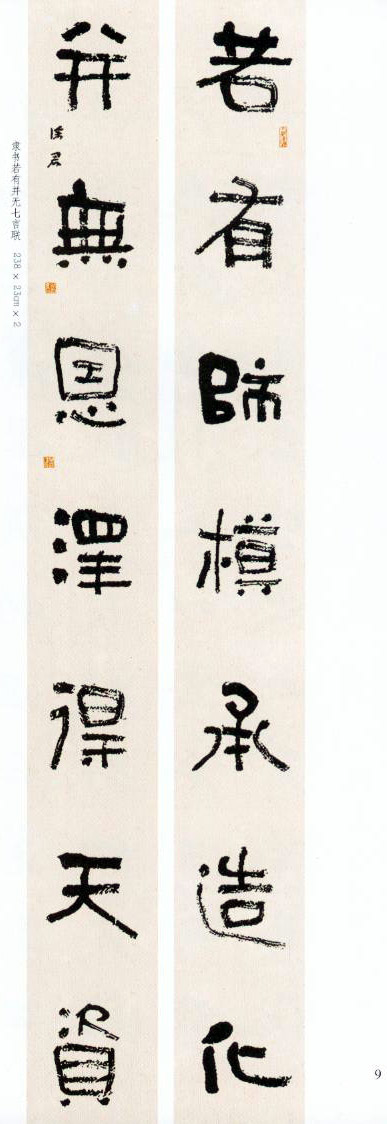 若有師模承造化
并無恩澤得天資
君
隶书若有并无七言联 238×23cm×2
9